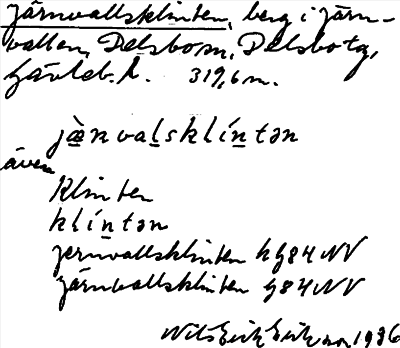 Järnvallsklinten, berg i Järn-
vallen, Delsbo sn, Delsbo tg,
Gävleb. l. 319,6 m.
jä̀ṉvaḻsklíṉtən
även
Klinten
klíṉtən
jernvallsklinten hg84NV
Järnvallsklinten g84NV
Nils Erik Eriksson 1936